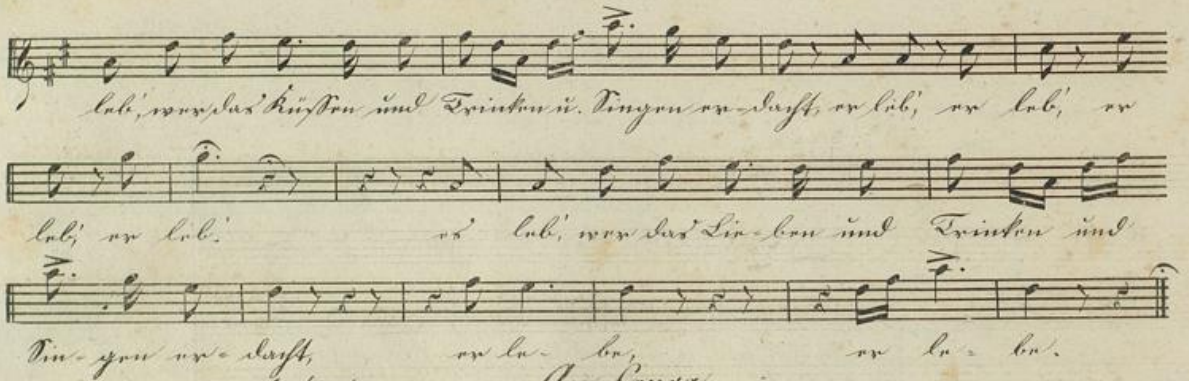 leb', wer das Küssen und Trinken u. Singen er-dacht, er leb', er leb', er
leb', er leb'. es leb', wer das Lie-ben und Trinken und
Sin-gen er-dacht, er le-be, er le-be.